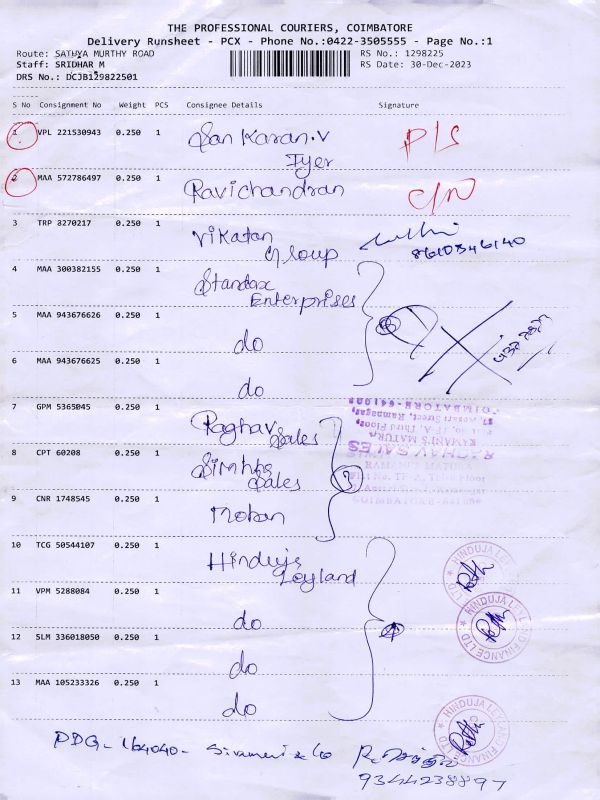 THE PROFESSIONAL COURIERS, COIMBATORE
Delivery Runsheet - PCX - Phone No.:0422-3505555 - Page No.:1
Route: SATHYA MURTHY ROAD
RS No.: 1298225
Staff: SRIDHAR M
RS Date: 30-Dec-2023
DRS No.: DCJB129822501
S No Consignment No Weight PCS Consignee Details Signature
1 VPL 221530943 0.250 1 Sankaran.V P/S
Iyer
2 MAA 572786497 0.250 1 Ravichandran C/N
3 TRP 3270217 0.250 1 Vikatan
Group 8610346140
4 MAA 300382155 0.250 1 Standax
Enterprises
5 MAA 943676626 0.250 1
do
6 MAA 943676625 0.250 1
do
7 GPM 5365045 0.250 1 Raghav
Sales
RAGHAV SALES
RAMANI'S MATURA
COIMBATORE-641009
8 CPT 60208 0.250 1 Simhha
Sales
3
9 CNR 1748545 0.250 1 Mohan
10 TCG 50544107 0.250 1 Hinduja
Leyland
HINDUJA LEYLAND FINANCE LTD
11 VPM 5288084 0.250 1
do
HINDUJA LEYLAND FINANCE LTD
12 SLM 336018050 0.250 1
do
13 MAA 105233326 0.250 1
do
HINDUJA LEYLAND FINANCE LTD
PDG - 164040 -
9344238897